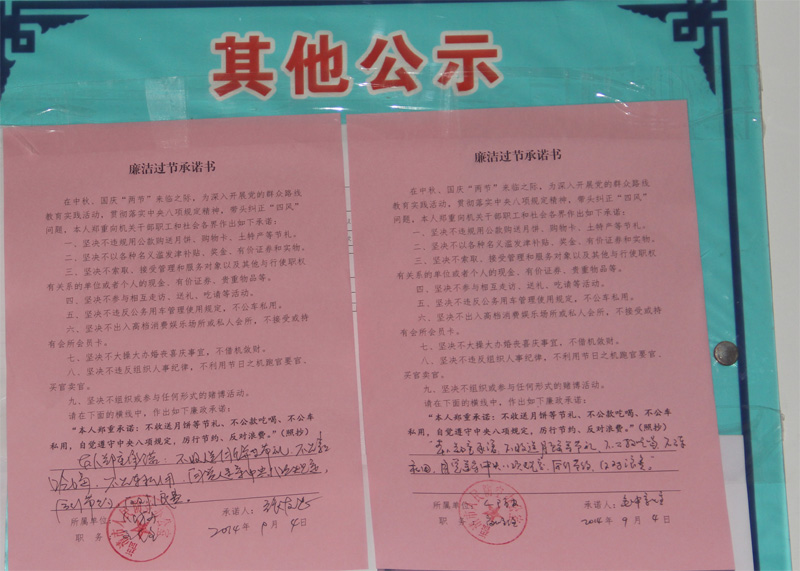 其他公示
廉洁过节承诺书
在中秋、国庆“两节”来临之际，为深入开展党的群众路线
教育实践活动，贯彻落实中央八项规定精神，带头纠正“四风”
问题，本人郑重向机关干部职工和社会各界作出如下承诺：
一、坚决不违规用公款购送月饼、购物卡、土特产等节礼。
二、坚决不以各种名义滥发津补贴、奖金、有价证券和实物。
三、坚决不索取、接受管理和服务对象以及其他与行使职权
有关系的单位或者个人的现金、有价证券、贵重物品等。
四、坚决不参与相互走访、送礼、吃请等活动。
五、坚决不违反公务用车管理使用规定，不公车私用。
六、坚决不出入高档消费娱乐场所或私人会所，不接受或持
有会所会员卡。
七、坚决不大操大办婚丧喜庆事宜，不借机敛财。
八、坚决不违反组织人事纪律，不利用节日之机跑官要官、
买官卖官。
九、坚决不组织或参与任何形式的赌博活动。
请在下面的横线中，作出如下廉政承诺：
“本人郑重承诺：不收送月饼等节礼、不公款吃喝、不公车
私用，自觉遵守中央八项规定，厉行节约、反对浪费。”（照抄）
所属单位
承诺人：
职 务
2014年 9月 4日
廉洁过节承诺书
在中秋、国庆“两节”来临之际，为深入开展党的群众路线
教育实践活动，贯彻落实中央八项规定精神，带头纠正“四风”
问题，本人郑重向机关干部职工和社会各界作出如下承诺：
一、坚决不违规用公款购送月饼、购物卡、土特产等节礼。
二、坚决不以各种名义滥发津补贴、奖金、有价证券和实物。
三、坚决不索取、接受管理和服务对象以及其他与行使职权
有关系的单位或者个人的现金、有价证券、贵重物品等。
四、坚决不参与相互走访、送礼、吃请等活动。
五、坚决不违反公务用车管理使用规定，不公车私用。
六、坚决不出入高档消费娱乐场所或私人会所，不接受或持
有会所会员卡。
七、坚决不大操大办婚丧喜庆事宜，不借机敛财。
八、坚决不违反组织人事纪律，不利用节日之机跑官要官、
买官卖官。
九、坚决不组织或参与任何形式的赌博活动。
请在下面的横线中，作出如下廉政承诺：
“本人郑重承诺：不收送月饼等节礼、不公款吃喝、不公车
私用，自觉遵守中央八项规定，厉行节约、反对浪费。”（照抄）
所属单位
承诺人：
职 务
2014年 9月 4日